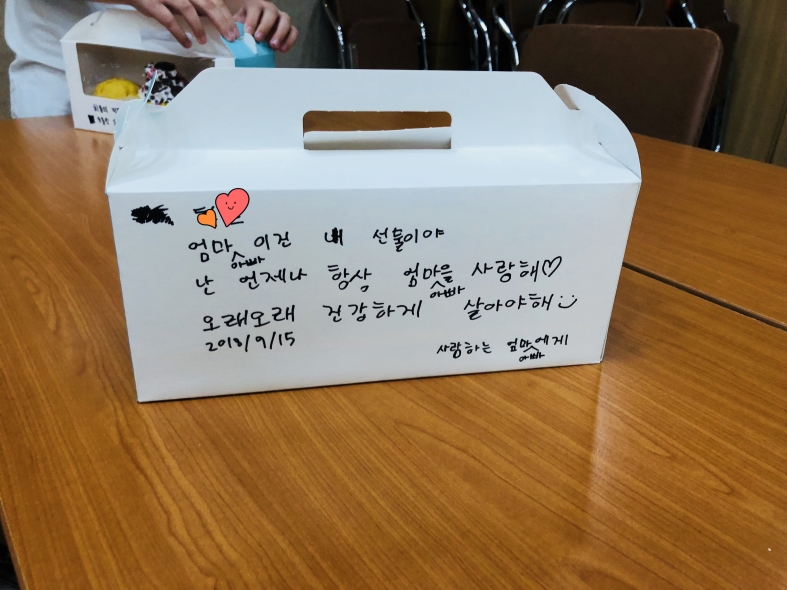 엄마 아빠 이건 내 선물이야
난 언제나 항상 엄마 아빠를 사랑해♡
오래오래 건강하게 살아야해
2018/9/15
사랑하는 엄마 아빠에게